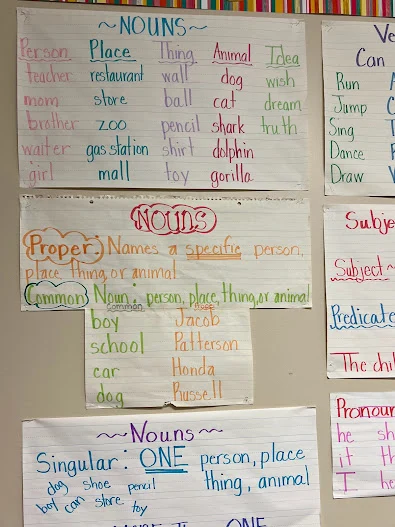 ~NOUNS~
Person Place Thing Animal Idea
teacher restaurant wall dog wish
mom store ball cat dream
brother zoo pencil shark truth
waiter gas station shirt dolphin
girl mall toy gorilla
NOUNS
Proper: Names a specific person,
place, thing, or animal
Common Noun: person, place, thing, or animal
Common Proper
boy Jacob
school Patterson
car Honda
dog Russell
~Nouns~
Singular: ONE person, place
thing, animal
dog shoe pencil
boy can store toy
ONE
Can
Run
Jump
Sing
Dance
Draw
Subje
Subject~
Predicate
The chil
Pronoun
he sh
it th
I he